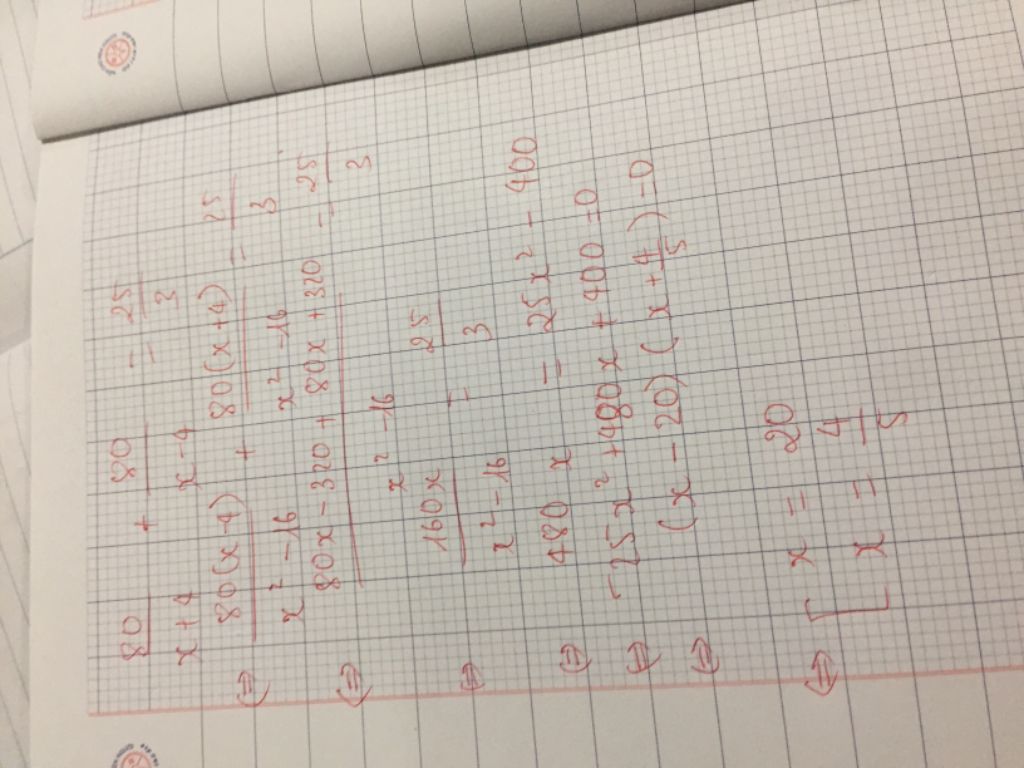 80/(x+4) + 80/(x-4) = 25/3
⇔ 80(x-4)/(x²-16) + 80(x+4)/(x²-16) = 25/3
⇔ (80x-320+80x+320)/(x²-16) = 25/3
⇔ 160x/(x²-16) = 25/3
⇔ 480x = 25x² - 400
⇔ -25x² + 480x + 400 = 0
⇔ (x-20)(x+4/5) = 0
⇔ [ x = 20
x = 4/5